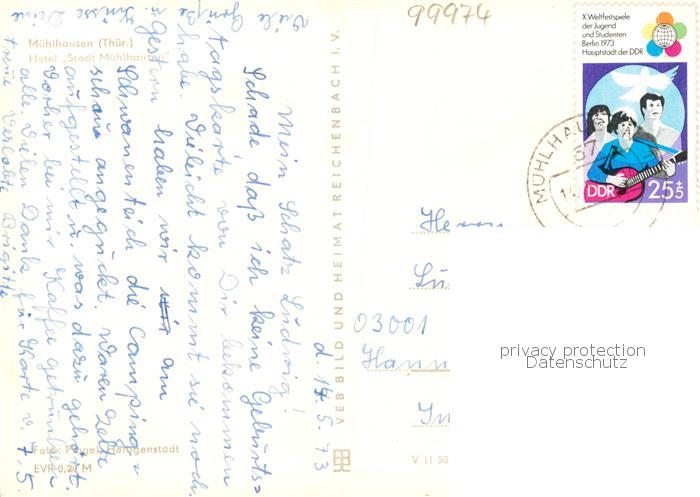 99974
Mühlhausen (Thür.)
Hotel „Stadt Mühlhausen"
d. 14.5.73
Mein Schatz Ludwig!
Schade, daß ich keine Geburts=
tagskarte von Dir bekommen
habe. Vieleicht kommt sie noch.
Gestern haben wir wir am
Schwanenteich die Camping=
schau angeguckt. Waren Zelte
aufgestellt u. was dazu gehört.
Vorher bei mir Kaffee getrunken
alle. Vielen Dank für Karte v. 7.5.
Viele Grüße u. Küsse Deine
treue Verlobte Brigitte
Foto: Heiligenstadt
EVR-0,20 M
VEB BILD UND HEIMAT REICHENBACH I. V.
V 11 50
X. Weltfestspiele
der Jugend
und Studenten
Berlin 1973
Hauptstadt der DDR
DDR
25+5
MÜHLHAU
57
14.
Herrn
Lu
03001
Hann
In
privacy protection
Datenschutz